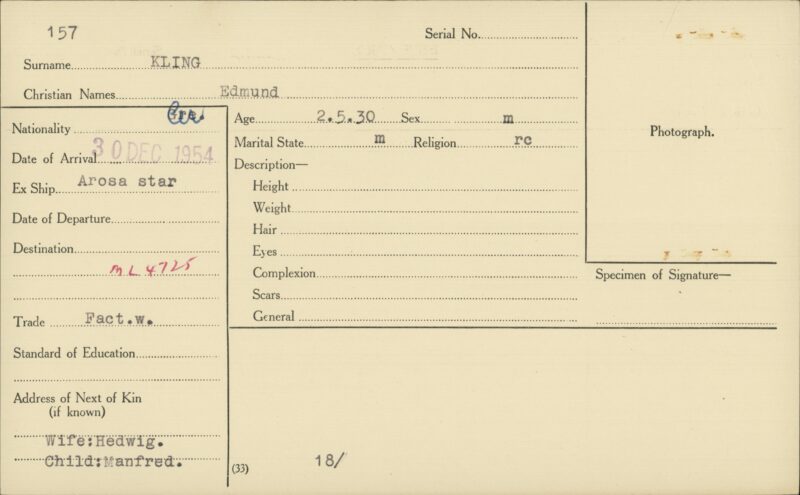 157
Serial No.
Surname KLING
Christian Names Edmund
Nationality
Date of Arrival 30 DEC 1954
Ex Ship Arosa star
Date of Departure
Destination
ML 4725
Trade Fact.w.
Standard of Education
Address of Next of Kin
(if known)
Wife:Hedwig.
Child:Manfred.
Age 2.5.30 Sex m
Marital State m Religion rc
Description—
Height
Weight
Hair
Eyes
Complexion
Scars
General
(33) 18/
Photograph.
Specimen of Signature—